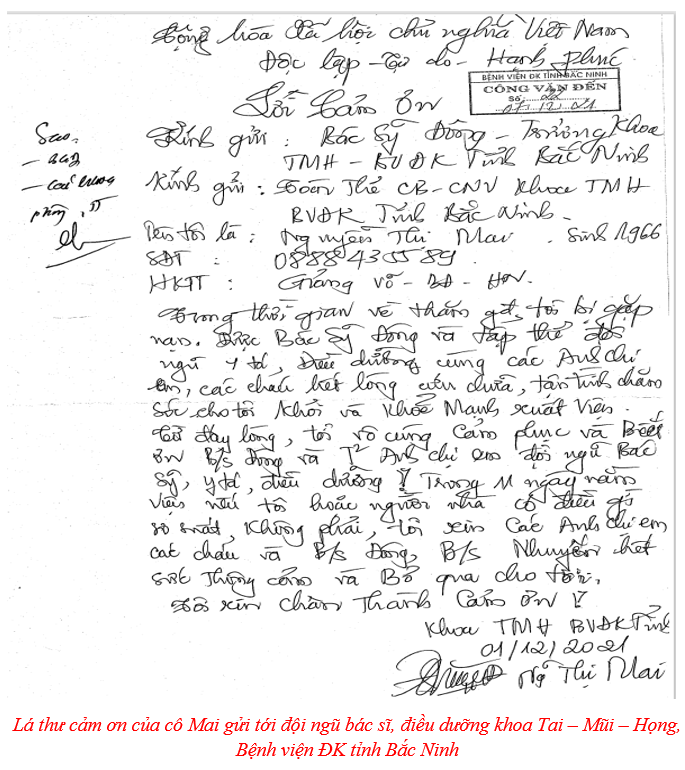 Cộng hòa Xã hội chủ nghĩa Việt Nam
Độc lập - Tự do - Hạnh phúc
BỆNH VIỆN ĐK TỈNH BẮC NINH
CÔNG VĂN ĐẾN
Số:
07.12.21
Lời Cảm ơn
Sao:
Kính gửi : Bác Sỹ Đông - Trưởng Khoa
TMH - BVĐK Tỉnh Bắc Ninh
Kính gửi : Toàn Thể CB-CNV Khoa TMH
BVĐK Tỉnh Bắc Ninh.
Tên tôi là : Nguyễn Thị Mai . Sinh 1966
SĐT : 0888435589
HKTT : Giảng võ - BĐ - HN.
Trong thời gian về thăm gđ, tôi bị gặp
nạn. Được Bác Sỹ Đông và tập thể đội
ngũ y tá, Điều dưỡng cùng các Anh chị
em, các cháu hết lòng cứu chữa, tận tình chăm
sóc cho tôi Khỏi và Khỏe Mạnh xuất Viện.
Từ đáy lòng, tôi vô cùng Cảm phục và Biết
ơn B/s Đông và T² Anh chị em đội ngũ Bác
Sỹ, y tá, điều dưỡng ! Trong 11 ngày nằm
viện nếu tôi hoặc người nhà có điều gì
sơ suất, Không phải, tôi xin Các Anh chị em
các cháu và B/s Đông, B/s Nhuyến hết
sức Thông cảm và Bỏ qua cho tôi.
Tôi xin chân Thành Cảm ơn !
Khoa TMH BVĐK Tỉnh
01/12/2021
Ng Thị Mai
Lá thư cảm ơn của cô Mai gửi tới đội ngũ bác sĩ, điều dưỡng khoa Tai – Mũi – Họng,
Bệnh viện ĐK tỉnh Bắc Ninh